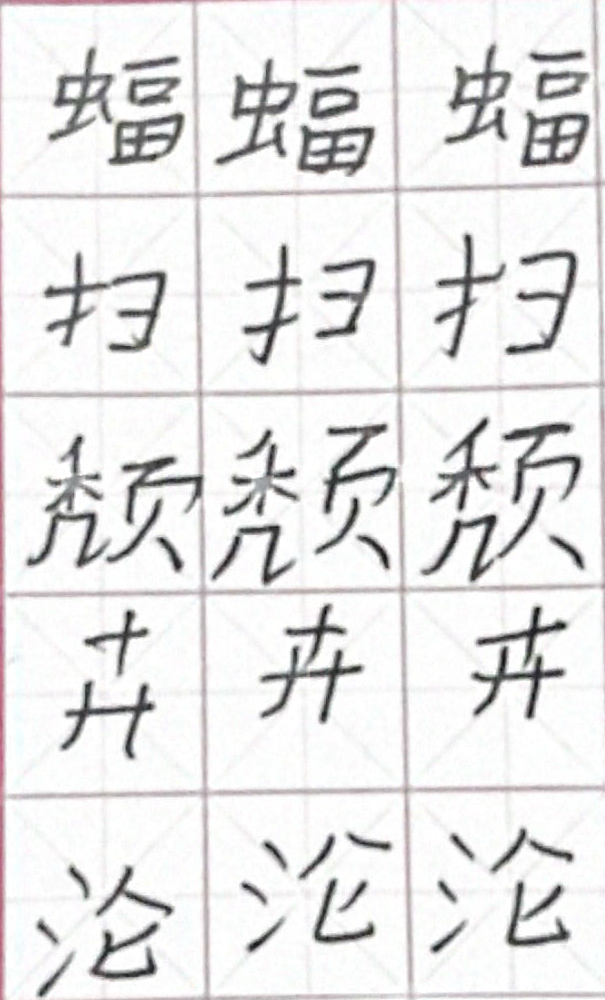 蝠蝠蝠
扫扫扫
颓颓颓
卉卉卉
沦沦沦